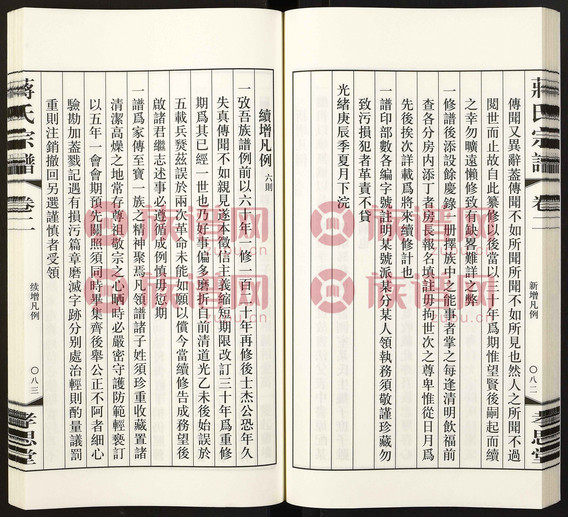 傳聞又異辭蓋傳聞不如所聞所聞不如所見也然人之所聞不過
閱世而止故自此纂修以後當以三十年爲期惟望賢後嗣起而續
之幸勿曠遠懶修致有缺畧難詳之弊
一修譜後添設餘慶錄一册擇族中之能事者掌之每逢清明飲福前
查各分房內添丁者房長報名填註毋拘世次之尊卑惟從日月爲
先後挨次詳載爲將來續修計也
一譜印部數各編字號註明某號派某分某人領執務須敬謹珍藏勿
致污損犯者革責不貸
光緒庚辰季夏月下浣
新增凡例
〇八二
孝思堂
蔣氏宗譜
卷一
續增凡例 六則
一攷吾族譜例前以六十年一修一百二十年再修後士杰公恐年久
失真傳聞不如親見遂本徵信主義縮短期限改訂三十年爲重修
期爲其已經一世也乃好事偏多磨折自前清道光乙未後始誤於
五載兵燹茲誤於兩次革命未能如願以償今當續修告成務望後
啟諸君繼志述事必遵循成例慎毋愆期
一譜爲家傳至寶一族之精神聚焉凡領譜諸子姓須珍重收藏置諸
清潔高燥之地常存尊祖敬宗之心晒時必嚴密守護防範輕褻訂
以五年一會會期預先關照須同時畢集齊後舉公正不阿者細心
驗勘加蓋戳記遇有損污篇章磨滅字跡分別處治輕則酌量議罰
重則注銷撤回另選謹慎者受領
蔣氏宗譜
卷一
续增凡例
〇八三
孝思堂
族谱网
zupu.cn
族谱网
zupu.cn
族谱网
zupu.cn
族谱网
zupu.cn